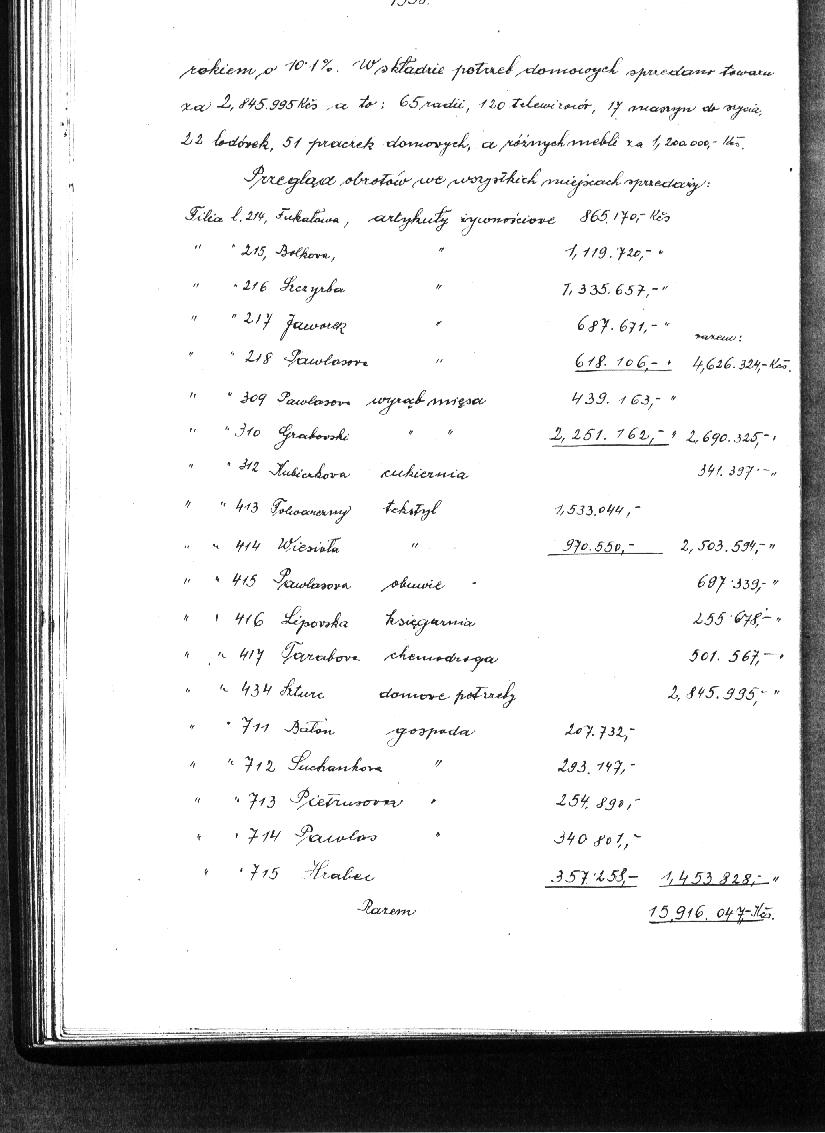 rokiem o 10·1%. W składzie potrzeb domowych sprzedano towaru
za 2,845.995 Kčs a to: 65 radii, 120 telewizorów, 17 maszyn do szycia,
22 lodówek, 51 praczek domowych, a różnych mebli za 1,200.000,- Kčs.
Przegląd obrotów we wszystkich miejscach sprzedaży:
Filia l. 214, Fukałowa, artykuły żywnościowe 865.170,- Kčs
" " 215, Bolkova, " 1,119.720,- "
" " 216 Szczyrba " 1,335.657,- "
" " 217 Jaworek " 687.671,- " razem:
" " 218 Pawlasova " 618.106,- " 4,626.324,- Kčs.
" " 309 Pawlasova wyrąb mięsa 439.163,- "
" " 310 Grabovski " " 2,251.162,- " 2,690.325,- "
" " 312 Kubiczkova cukiernia 341.397·- "
" " 413 Folwarczny tekstyl 1,533.044,-
" " 414 Wiesioła " 970.550,- 2,503.594,- "
" " 415 Pawlasova obuwie 697.339,- "
" " 416 Lipovska księgarnia 255.678,- "
" " 417 Farabova chemodroga 501.567,- "
" " 434 Szturc domove potrzeby 2,845.995,- "
" " 711 Baton gospoda 207.732,-
" " 712 Suchankova " 293.147,-
" " 713 Pietrusovna " 254.890,-
" " 714 Pawlas " 340.801,-
" " 715 Hrabec 357.258,- 1,453.828,- "
Razem 15,916.047,- Kčs.